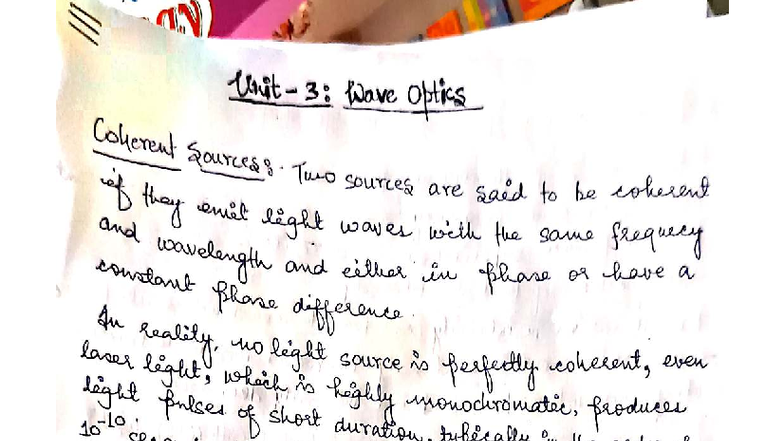 Unit-3: Wave Optics
Coherent Sources:- Two sources are said to be coherent
if they emit light waves with the same frequecy
and wavelength and either in phase or have a
constant phase difference.
In reality, no light source is perfectly coherent, even
laser light, which is highly monochromatic, produces
light pulses of short duration, typically in the
10-10